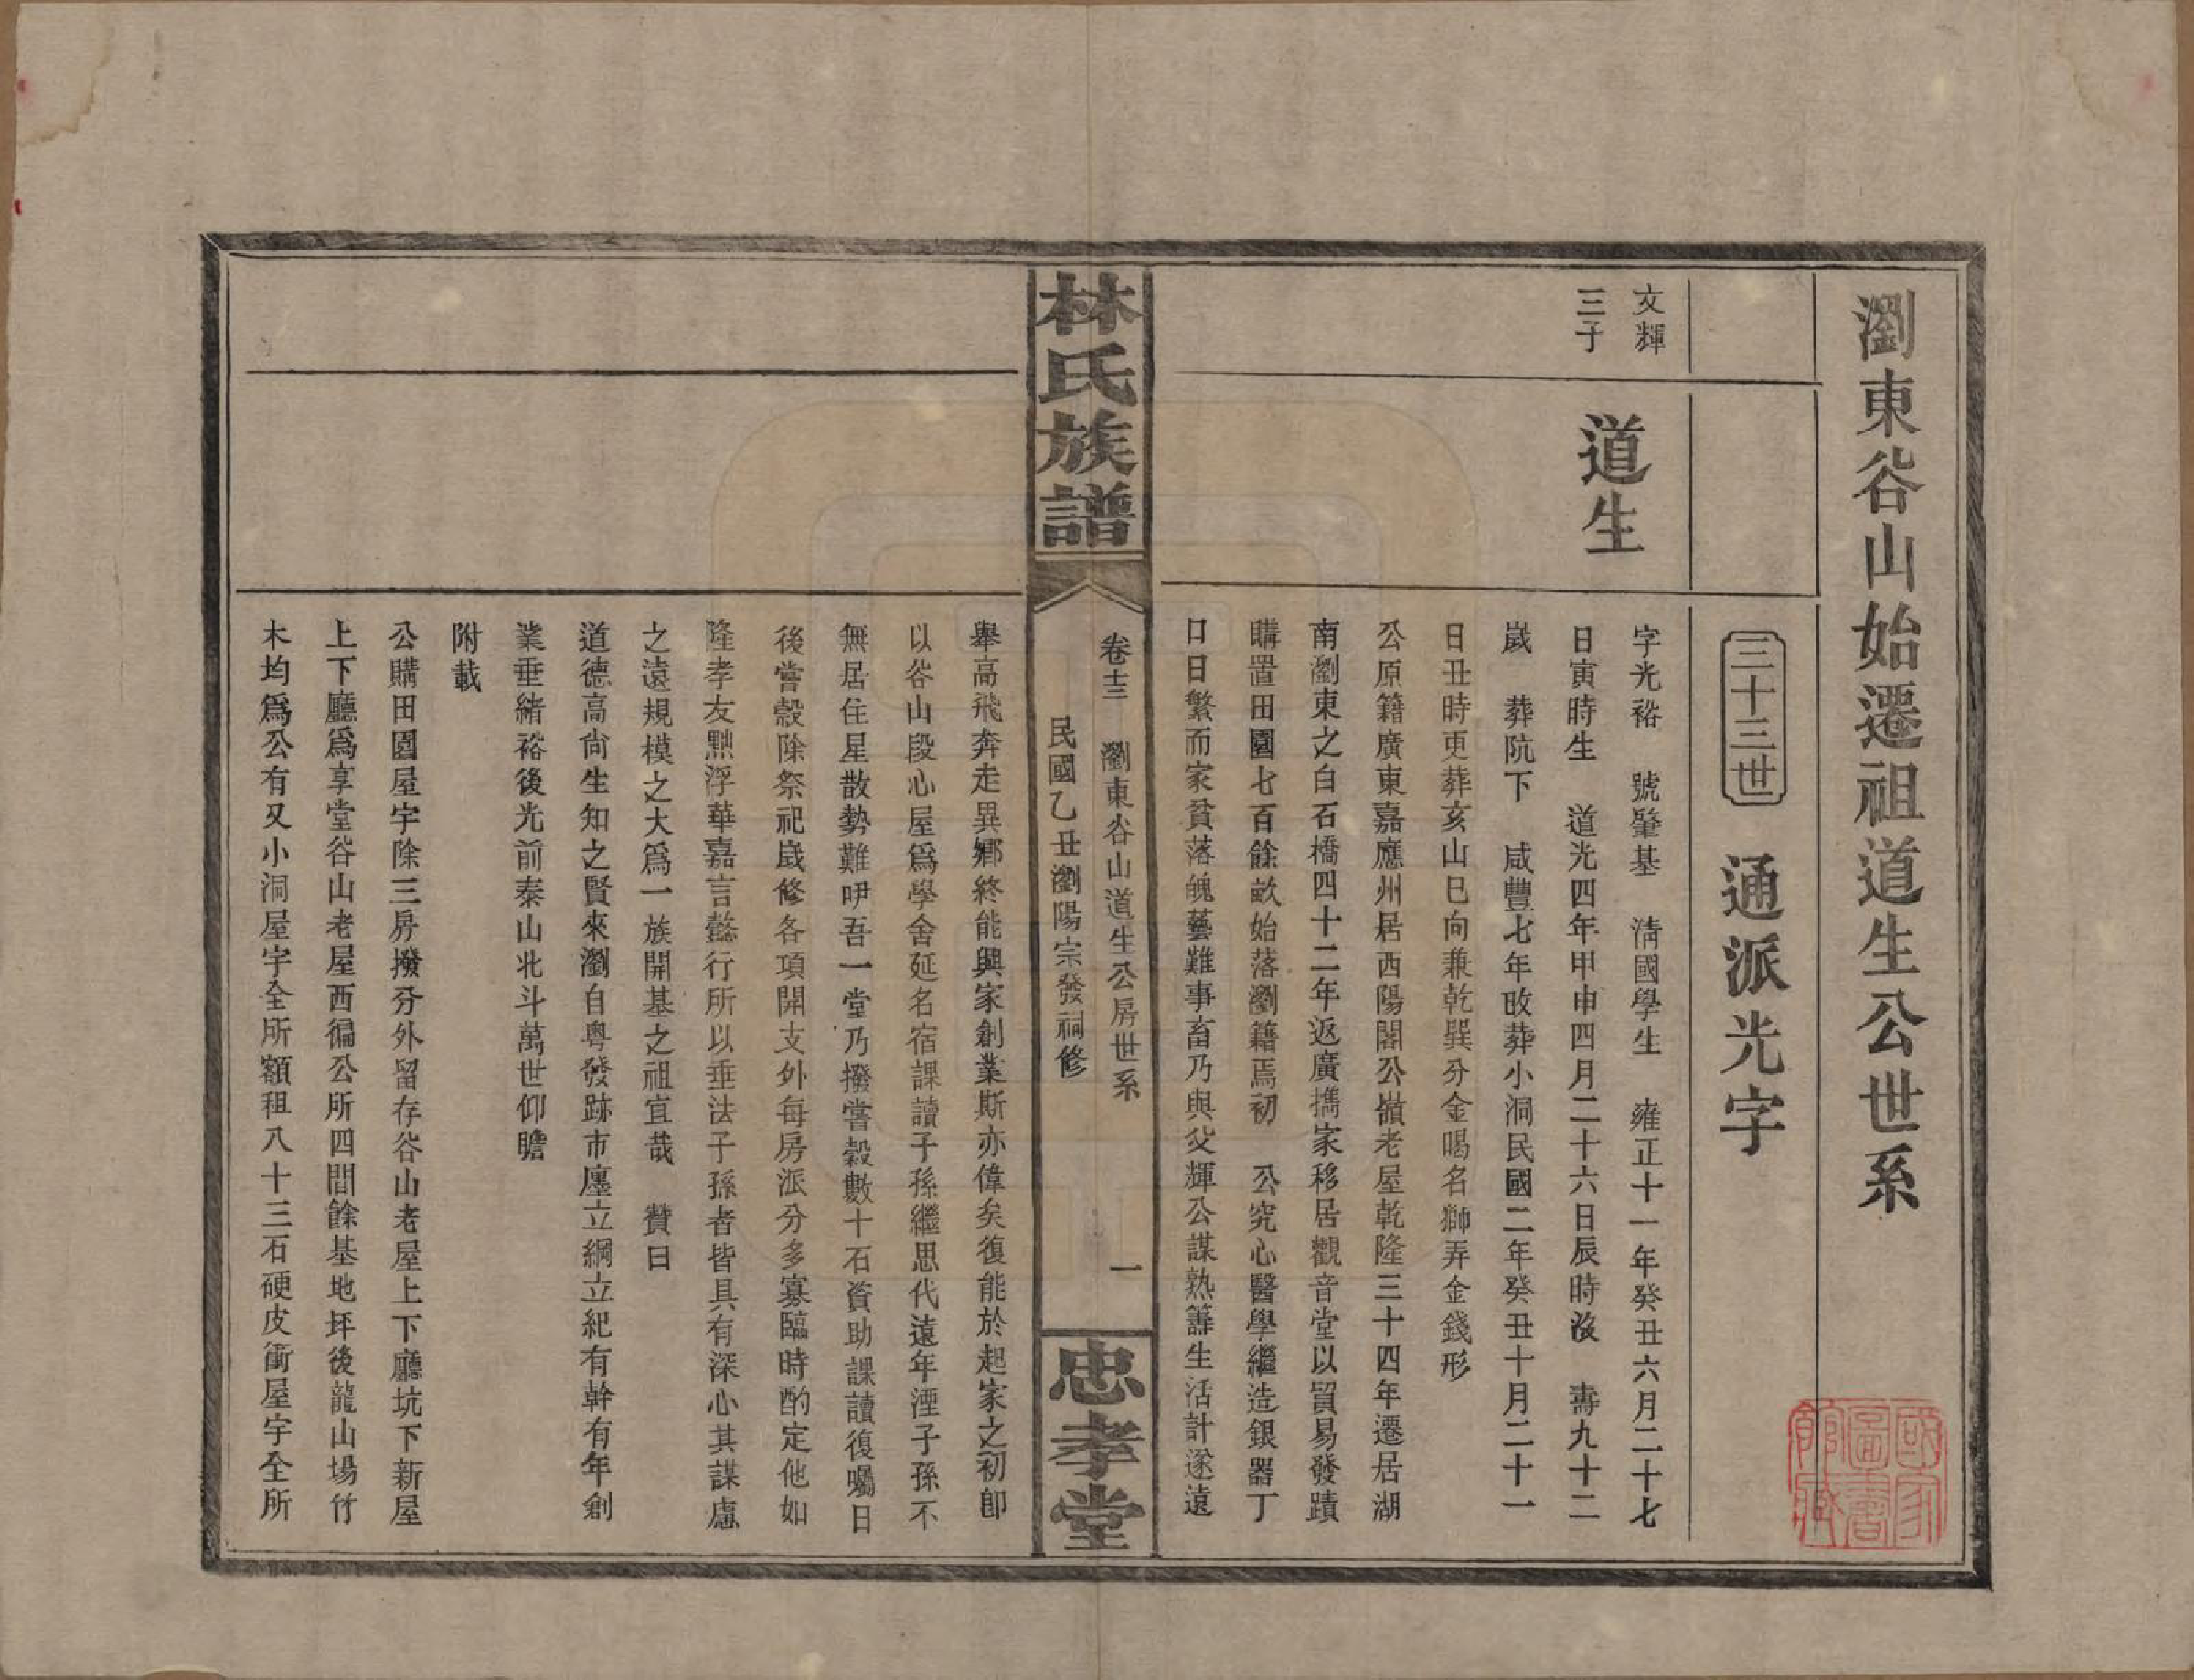 瀏東谷山始遷祖道生公世系
三十三世　通派光字
文輝
三子
道生
字光裕　號肇基　清國學生　雍正十一年癸丑六月二十七
日寅時生　道光四年甲申四月二十六日辰時沒　壽九十二
歲　葬阬下　咸豐七年改葬小洞民國二年癸丑十月二十一
日丑時更葬亥山巳向兼乾巽分金喝名獅弄金錢形
公原籍廣東嘉應州居西陽閣公嶺老屋乾隆三十四年遷居湖
南瀏東之白石橋四十二年返廣攜家移居觀音堂以貿易發蹟
購置田園七百餘畝始落瀏籍焉初　公究心醫學繼造銀器丁
口日繁而家貧落魄藝難事畜乃與父輝公謀熟籌生活計遂遠
林氏族譜
卷十三　瀏東谷山道生公房世系
民國乙丑瀏陽宗發祠修
一
忠孝堂
舉高飛奔走異鄉終能興家創業斯亦偉矣復能於起家之初卽
以谷山段心屋爲學舍延名宿課讀子孫繼思代遠年湮子孫不
無居住星散勢難吚吾一堂乃撥嘗穀數十石資助課讀復囑日
後嘗穀除祭祀歲修各項開支外每房派分多寡臨時酌定他如
隆孝友㷀浮華嘉言懿行所以垂法子孫者皆具有深心其謀慮
之遠規模之大爲一族開基之祖宜哉　贊曰
道德高尙生知之賢來瀏自粤發跡市廛立綱立紀有幹有年創
業垂緒裕後光前泰山北斗萬世仰瞻
附載
公購田園屋宇除三房撥分外留存谷山老屋上下廳坑下新屋
上下廳爲享堂谷山老屋西徧公所四間餘基地坪後龍山場竹
木均爲公有又小洞屋宇全所額租八十三石硬皮衝屋宇全所
國家圖書館藏